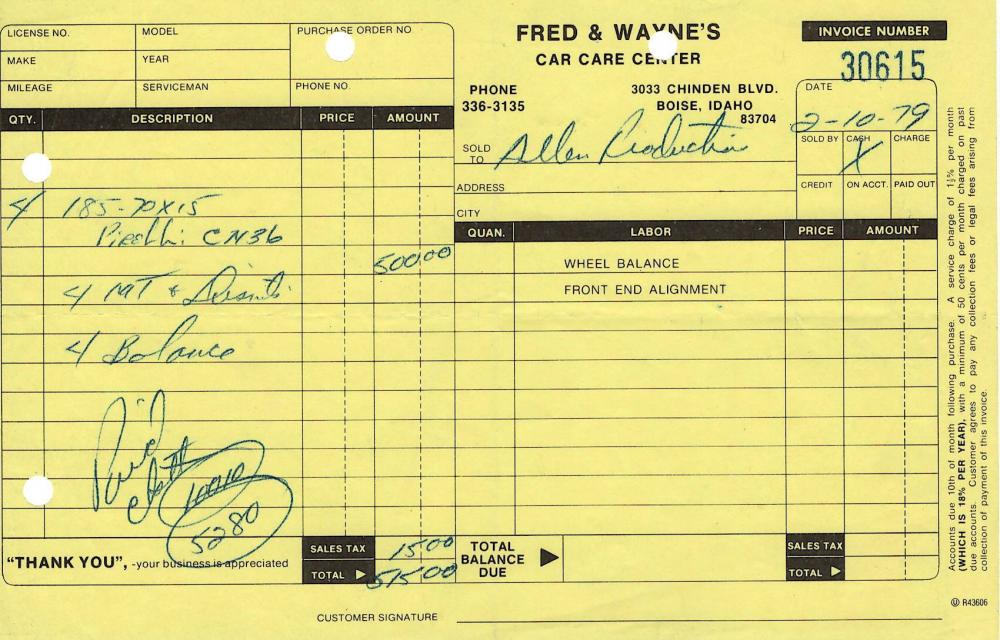 LICENSE NO. MODEL PURCHASE ORDER NO
MAKE YEAR
MILEAGE SERVICEMAN PHONE NO.
FRED & WAYNE'S
CAR CARE CENTER
PHONE
336-3135
3033 CHINDEN BLVD.
BOISE, IDAHO
83704
INVOICE NUMBER
30615
DATE
2-10-79
SOLD TO Allen Production
SOLD BY CASH X CHARGE
ADDRESS
CREDIT ON ACCT. PAID OUT
CITY
QTY. DESCRIPTION PRICE AMOUNT
4 185-70X15
Pirelli CN36
500 00
4 MT & Dismt.
4 Balance
Paid
5280
QUAN. LABOR PRICE AMOUNT
WHEEL BALANCE
FRONT END ALIGNMENT
"THANK YOU", -your business is appreciated
SALES TAX 15 00
TOTAL 515 00
TOTAL BALANCE DUE
SALES TAX
TOTAL
CUSTOMER SIGNATURE
Accounts due 10th of month following purchase. A service charge of 1½% per month
(WHICH IS 18% PER YEAR), with a minimum of 50 cents per month charged on past
due accounts. Customer agrees to pay any collection fees or legal fees arising from
collection of payment of this invoice.
R43606